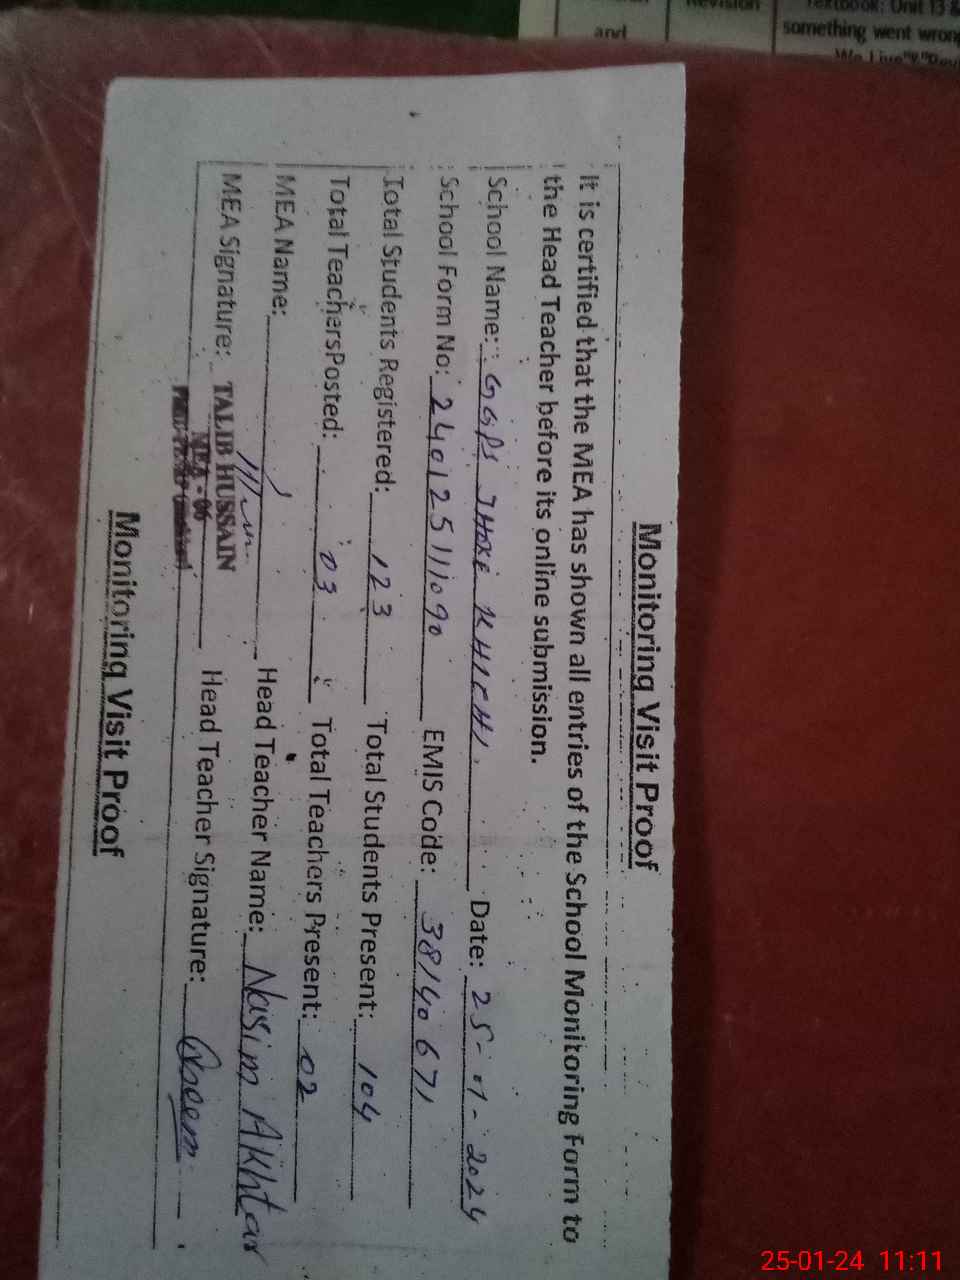 Revision
Textbook: Unit 13 &
and
something went wrong
Monitoring Visit Proof
It is certified that the MEA has shown all entries of the School Monitoring Form to
the Head Teacher before its online submission.
School Name: GGPS JHOKE KHICHI. Date: 25-01-2024
School Form No: 240125111090 EMIS Code: 38140671
Total Students Registered: 123 Total Students Present: 104
Total TeachersPosted: 03 Total Teachers Present: 02
MEA Name: Head Teacher Name: Nasim Akhtar
MEA Signature: TALIB HUSSAIN Head Teacher Signature:
MEA - 06
Monitoring Visit Proof
25-01-24 11:11